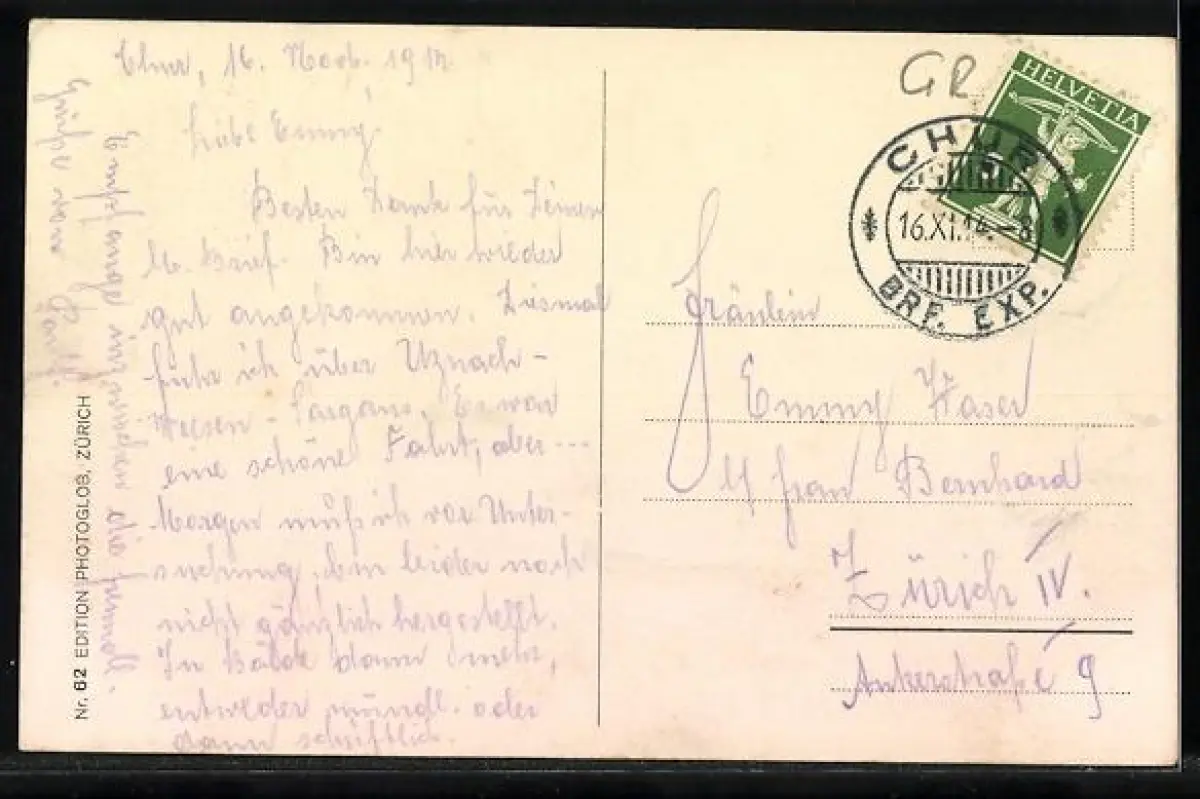 Chur, 16. Novb. 1914
Liebe Emmy!
Besten Dank für Deinen
lb. Brief. Bin hier wieder
gut angekommen. Diesmal
fuhr ich über Uznach-
Weesen - Sargans. Es war
eine schöne Fahrt, aber ---
Morgen muß ich vor Unter-
suchung, bin leider noch
nicht gänzlich hergestellt.
In Bälde dann mehr,
entweder mündl. oder
dann schriftlich.
Empfange inzwischen die
Grüße von
Nr. 62 EDITION PHOTOGLOB, ZÜRICH
GR
HELVETIA
CHUR
16.XI.14.-8
BRF. EXP.
Fräulein
Emmy Waser
Frau Bernhard
Zürich IV.
Ankerstraße 9